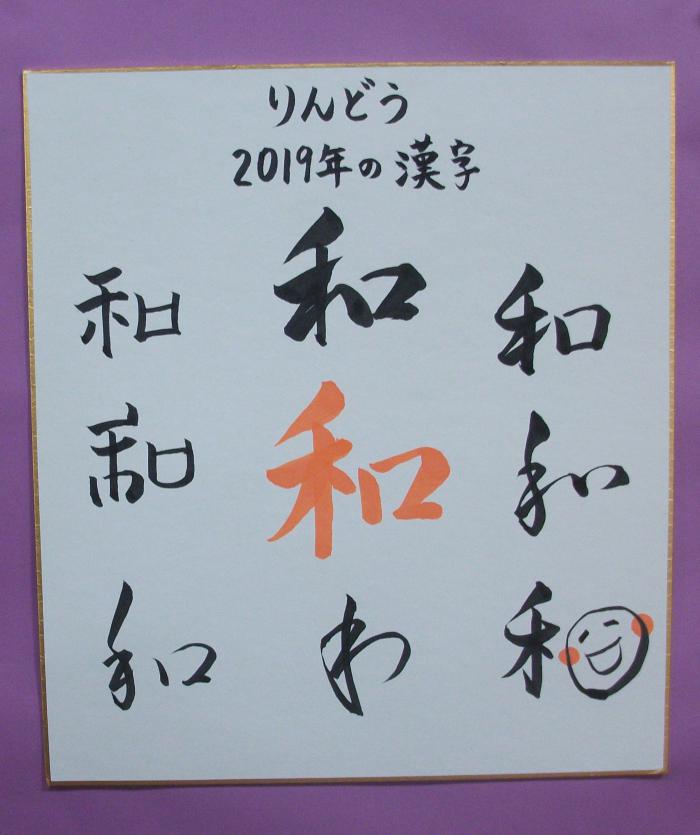 りんどう
2019年の漢字
和 和 和
和 和 和
和 わ 和